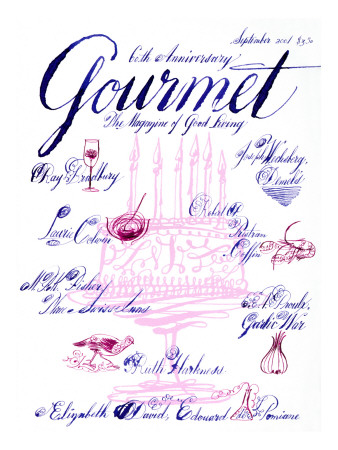 September 2001 $3.50
60th Anniversary
Gourmet
The Magazine of Good Living
Ray Bradbury
Joseph Wechsberg,
Demel's
Laurie Colwin
Robert P.
Tristram
Coffin
M.F.K. Fisher,
Three Swiss Inns
Garlic War
Ruth Harkness
Elizabeth David, Edouard de Pomiane